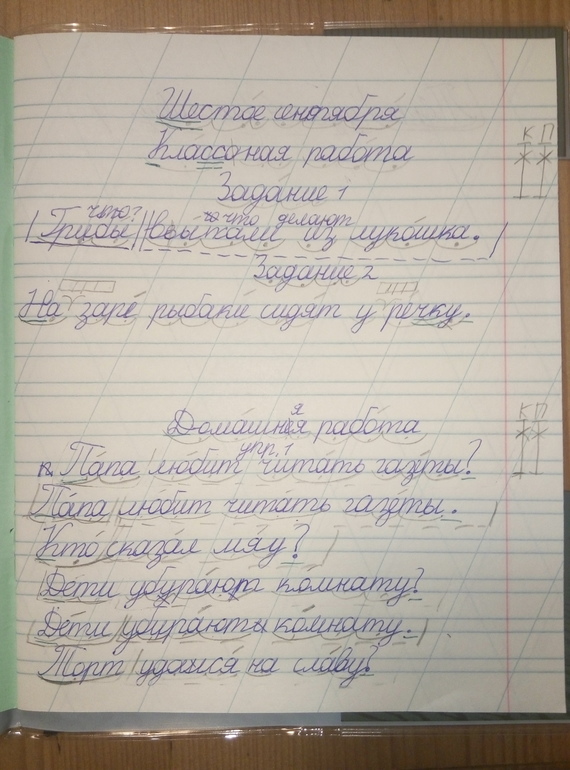 Шестое сентября
Классная работа
Задание 1
что? что делают
Грибы высыпали из лукошка.
Задание 2
На заре рыбаки сидят у речку.
К П
К П
Домашняя работа
упр. 1
Папа любит читать газеты?
Папа любит читать газеты.
Кто сказал мяу?
Дети убирают комнату?
Дети убирают комнату.
Торт удался на славу?